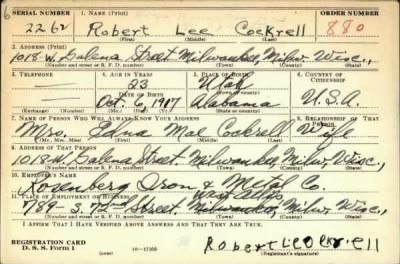 SERIAL NUMBER 1. NAME (Print) ORDER NUMBER
2262 Robert Lee Cockrell 880
(First) (Middle) (Last)
2. ADDRESS (Print)
1018 W. Galena Street Milwaukee, Milw. Wisc.,
(Number and street or R. F. D. number) (Town) (County) (State)
3. TELEPHONE 4. AGE IN YEARS 5. PLACE OF BIRTH 6. COUNTRY OF CITIZENSHIP
23 Utah
DATE OF BIRTH
Oct. 6, 1917 Alabama U.S.A.
(Exchange) (Number) (Mo.) (Day) (Yr.) (State or country)
7. NAME OF PERSON WHO WILL ALWAYS KNOW YOUR ADDRESS 8. RELATIONSHIP OF THAT PERSON
Mrs. Edna Mae Cockrell Wife
(Mr., Mrs., Miss) (First) (Middle) (Last)
9. ADDRESS OF THAT PERSON
1018 W. Galena Street. Milwaukee, Milw. Wisc.,
(Number and street or R. F. D. number) (Town) (County) (State)
10. EMPLOYER'S NAME
Rosenberg Iron & Metal Co.
11. PLACE OF EMPLOYMENT OR BUSINESS West Allis
789 - S. 72nd Street. Milwaukee, Milw. Wisc.,
(Number and street or R. F. D. number) (Town) (County) (State)
I AFFIRM THAT I HAVE VERIFIED ABOVE ANSWERS AND THAT THEY ARE TRUE.
REGISTRATION CARD
D. S. S. Form 1 16—17105 Robert Lee Cockrell
(Registrant's signature)